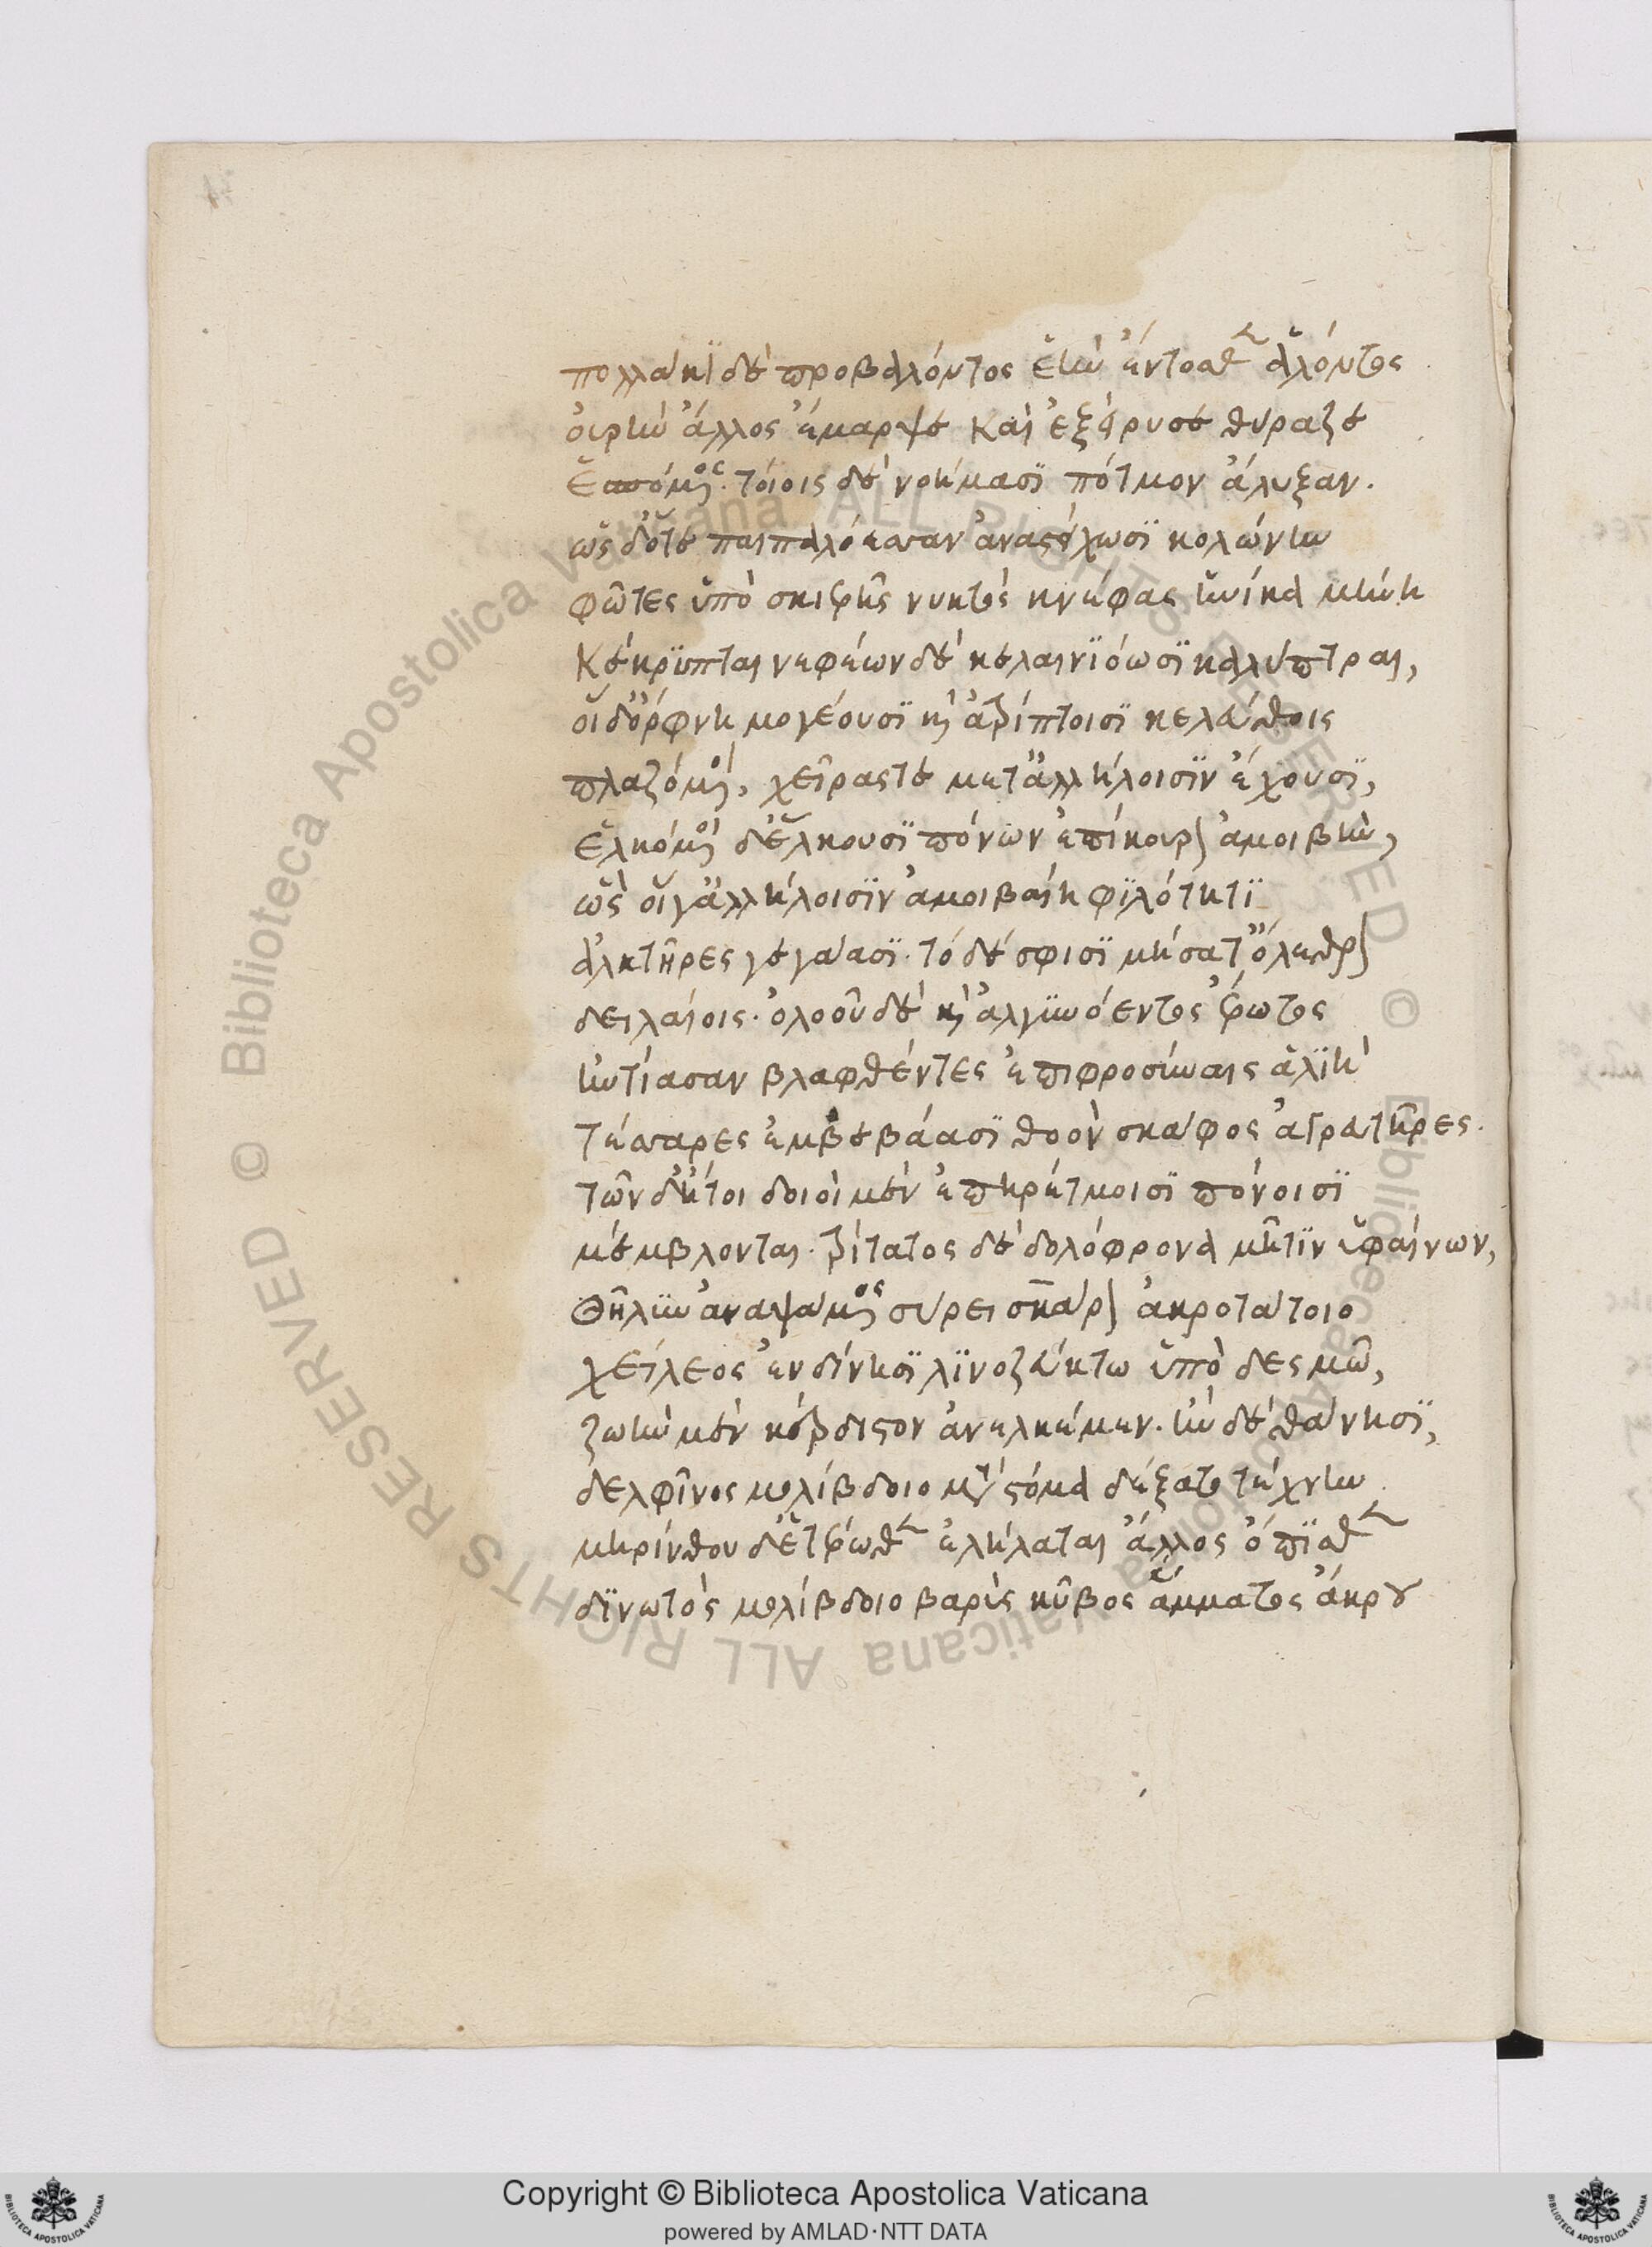 πολλάκι δὲ προβαλόντος ἑὴν ἔντοσθεν ἁλόντος
οὐρὴν ἄλλος ἔμαρψε καὶ ἐξείρυσε θύραζε
ἑσπόμενος. τοίοις δὲ νοήμασι πότμον ἄλυξαν.
ὡς δ' ὅτε παιπαλόεσσαν ἀναστείχωσι κολώνην
φῶτες ὑπὸ σκιερῆς νυκτὸς κνέφας ἡνίκα μήνη
κέκρυπται νεφέων δὲ κελαινιόωσι καλύπτραι,
οἱ δ' ὄρφνη μογέουσι καὶ ἀτρίπτοισι κελεύθοις
πλαζόμενοι, χεῖράς τε μετ' ἀλλήλοισιν ἔχουσι,
ἑλκόμενοι δ' ἕλκουσι πόνων ἐπίκουρον ἀμοιβήν,
ὣς οἵγ' ἀλλήλοισιν ἀμοιβαίη φιλότητι
ἀλκτῆρες γεγάασι. τὸ δέ σφισι μήσατ' ὄλεθρον
δειλαίοις. ὀλοοῦ δὲ καὶ ἀλγινόεντος ἔρωτος
ἠντίασαν βλαφθέντες ἐπιφροσύναις ἁλιή
τέσσαρες ἐμβεβάασι θοὸν σκάφος ἀγρευτῆρες.
τῶν δ' ἤτοι δοιοὶ μὲν ἐπηρέτμοισι πόνοισι
μέμβλονται. τρίτατος δὲ δολόφρονα μῆτιν ὑφαίνων,
θῆλυν ἀναψάμενος σύρει σκάρον ἀκροτάτοιο
χείλεος ἐν δίνησι λινοζεύκτω ὑπὸ δεσμῶ,
ζωὴν μὲν κέρδιστον ἀνελκέμεν. ἢν δὲ θάνησι,
δελφῖνος μολίβδοιο μετὰ στόμα δέξατο τέχνην
μηρίνθου δ' ἑτέρωθεν ἐλήλαται ἄλλος ὄπισθεν
δινωτὸς μολίβδοιο βαρὺς κῦβος ἅμματος ἄκρου